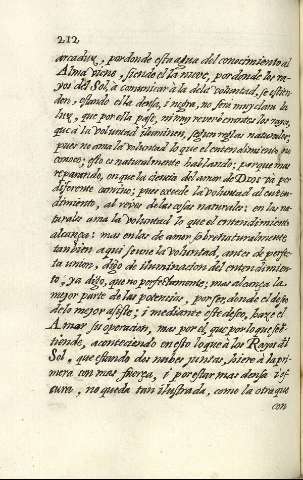 212
arcaduz, por donde esta agua del conocimiento al
Alma viene, siendo ella nuve, por donde los ra-
yos del Sol, a comunicar à la dela voluntad, se estien-
den, estando ella densa, i negra, no sera muy clara la
luz, que por ella passe, ni muy reverberantes los rayos,
que à la voluntad iluminen, segun reglas naturales,
pues no ama la voluntad lo que el entendimiento, no
conoce; esto es naturalmente hablando; porque mas
reparando, en que la ciencia del amor de Dios và por
diferente camino; pues excede la voluntad al enten-
dimiento, al reves de las cosas naturales; en las na-
turales ama la voluntad lo que el entendimiento
alcança: mas en las de amor sobrenaturalmente
tambien aqui sirve la voluntad, antes de perfe-
ta union, digo de iluminacion del entendimien-
to, ya digo, que no perfectamente; mas alcança la
mejor parte de las potencias, por ser donde el deseo
de lo mejor assiste; i mediante este deseo, haze el
Amar su operacion, mas por el, que por lo que
tiende, aconteciendo en esto lo que à los Rayos del
Sol, que estando dos nubes juntas, hiere à la pri-
mera con mas fuerça, i por estar mas densa i es-
cura, no queda tan ilustrada, como la otra que
con